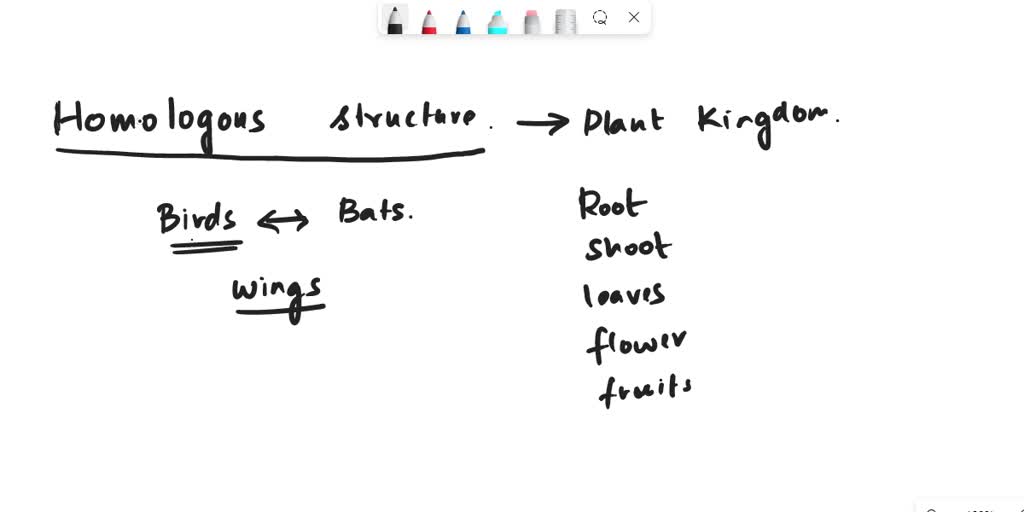 Homologous structure. → Plant Kingdom.
Birds ↔ Bats.
wings
Root
shoot
leaves
flower
fruits